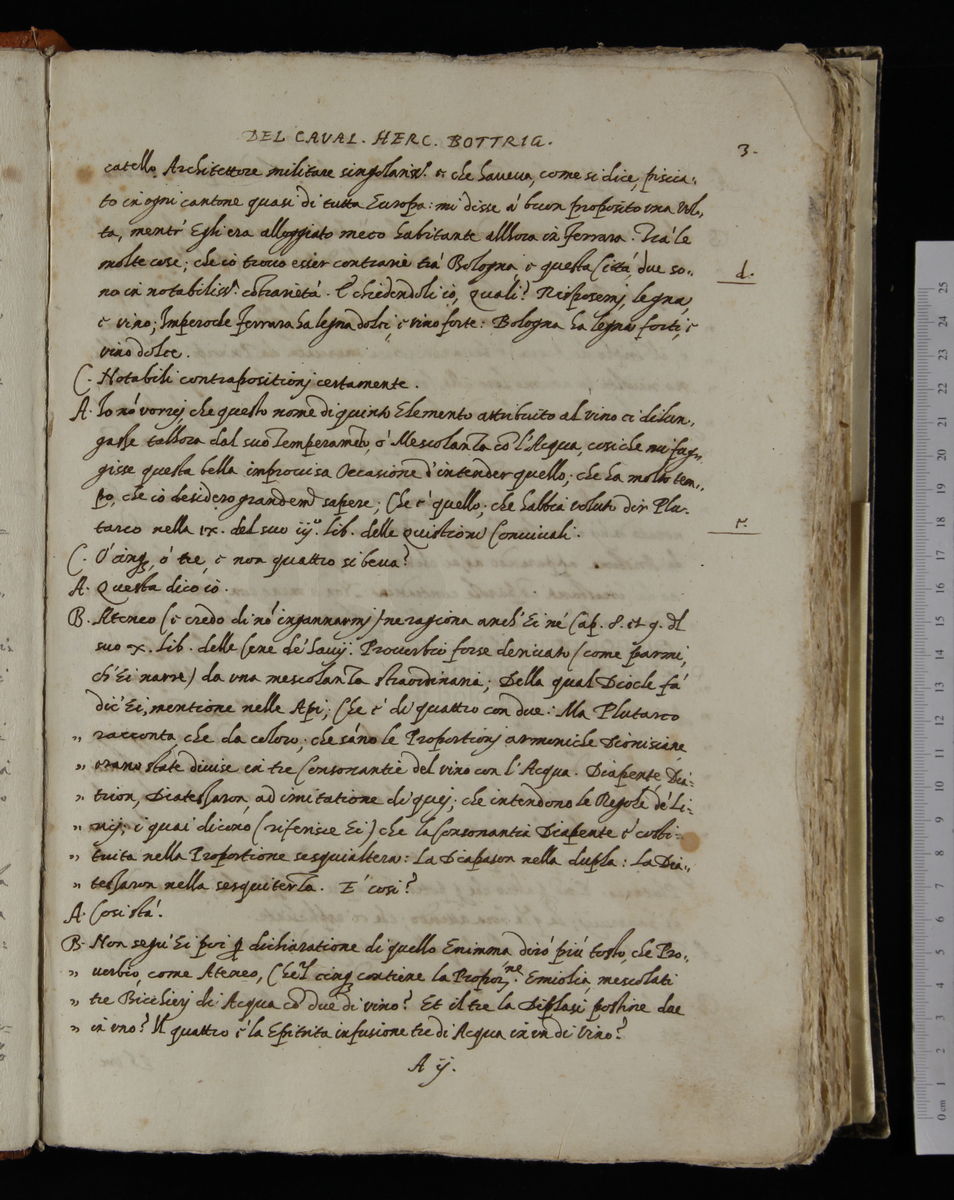 DEL CAVAL. HERC. BOTTRIG.
3.
catello Architettore militare singolariss.º et che haueua, come si dice, piscia„
to in ogni cantone quasi di tutta Europa: mi disse à buon proposito una vol„
ta, mentr' Egli era alloggiato meco habitante allhora in Ferrara. Trà le
molte cose; che io trouo esser contrarie trà Bologna, e questa Città due so„
d.
no in notabiliss.ª cōtrarietà. E chiedendoli io, Quali? Risposemi, legna,
e vino; Imperoche Ferrara ha legna dolci, e vino forte: Bologna ha legna forti, e
vino dolce.
C. Notabili contrapositionj certamente.
A. Io nō vorrej che questo nome di quinto Elemento attribuito al vino ci dilun„
gasse tallhora dal suo Temperamēto, ò Mescolanza cō l'Acqua, cosi che mi fug„
gisse questa bella improuisa Occasione d'intender quello; che ha molto tem„
po, che io desidero grandem.te sapere; Che è quello; che habbia voluto dir Plu„
tarco nella ix. del suo iij.º lib. delle Quistioni Conuiuali.
r.
C. O' cinq;, ò tre, e non quattro si beua?
A. Questa dico io.
B. Ateneo (e credo di nō ingannarmj) ne ragiona anch' Ei né Cap. 8. et 9. dl
suo x. Lib. delle Cene de' Sauij. Prouerbio forse deriuato (come parmi,
ch' Ei narri) da vna mescolanza straordinaria; Della qual Diocle fà
dic' Ei, mentione nelle Api; Che è di quattro con due. Ma Plutarco
„ racconta, che da coloro; che sāno le Proportionj armoniche Dionisiane
„ erano state diuise in tre Consonantie del vino con l'Acqua. Diapente Dia„
„ trion, Diatessaron, ad imitatione di quej; che intendono le Regole de' Li„
„ rici; i quai dicono (riferisce Ei) che la Consonantia Diapente è costi„
„ tuita nella Proportione sesquialtera: La Diapason nella dupla: La Dia„
„ tessaron nella sesquiterza. E' cosi?
A. Cosi stà.
B. Non segu' Ei poi p dichiaratione di quello Enimma dirò più tosto, che Pro„
„ uerbio come Ateneo, Che'l cinq; contiene la Propor.ne Emiolia, mescolati
„ tre Bicchierj di Acqua cō due di vino? Et il tre la Diplasi posti ne due
„ in vno? Il quattro è la Epitrita infusione tre di Acqua in vn di Vino?
A ij.